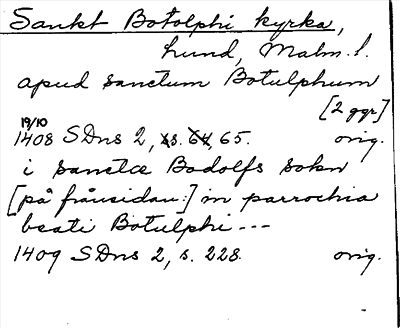 Sankt Botolphi kyrka,
lund, Malm. l.
apud sanctum Botulphum
[2 ggr]
19/10
1408 SDns 2, s. 64, 65. orig.
i sanctæ Bodolfs sokn
[på frånsidan:] in parrochia
beati Botulphi ---
1409 SDns 2, s. 228. orig.